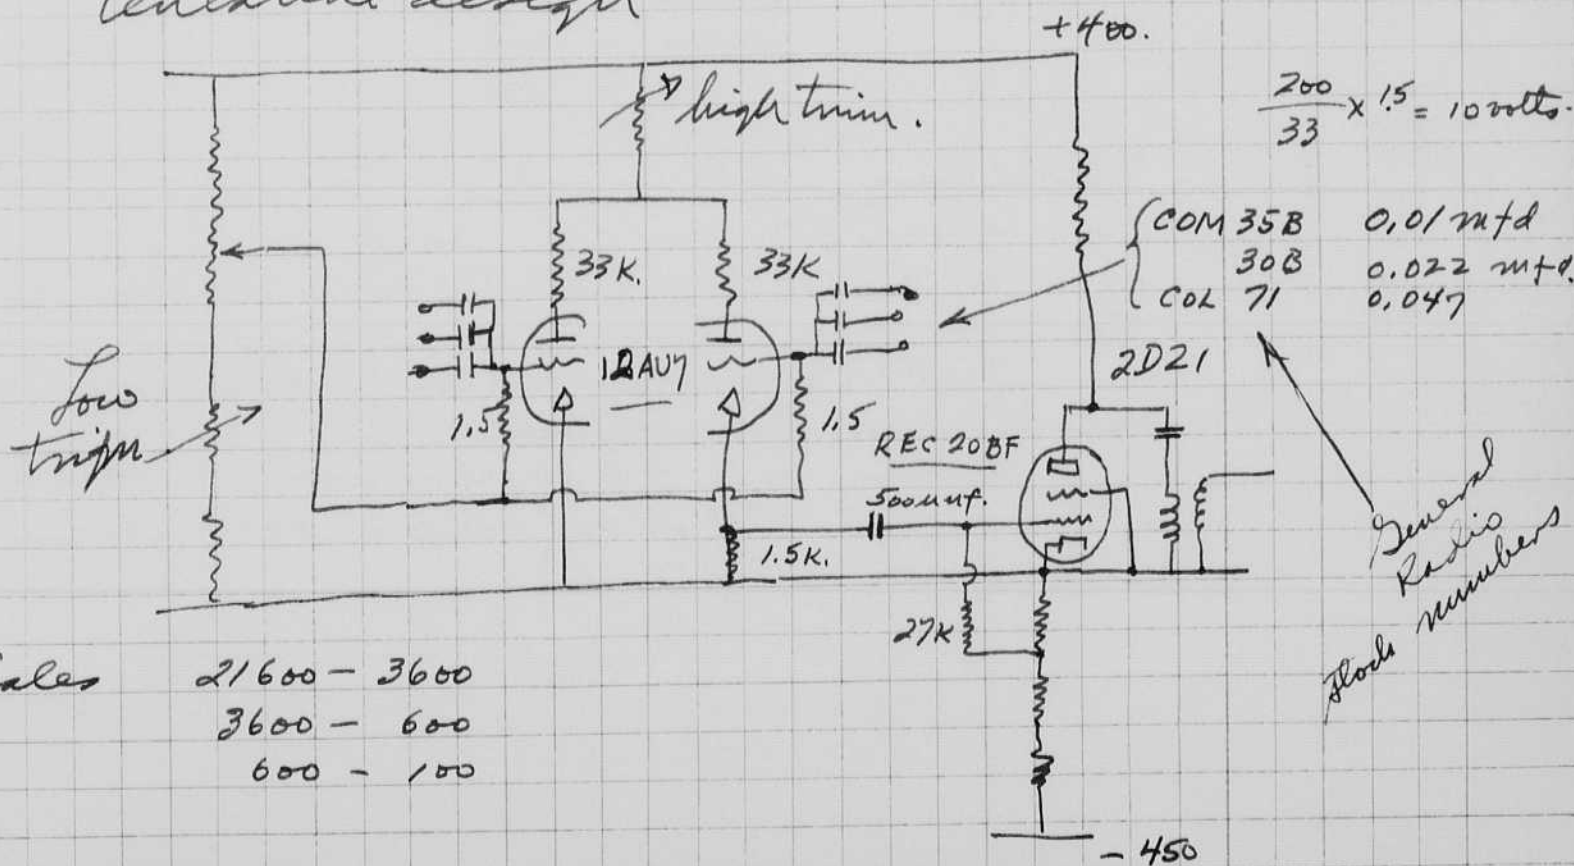 tentative design
+400.
high trim.
200/33 x 1.5 = 10 volts.
COM 35B 0.01 mfd
30B 0.022 mfd.
COL 71 0.047
33K.
33K
12AU7
2D21
Low
1.5
1.5
REC 20BF
500uuf.
1.5K.
27K
General
Radio
Stock numbers
21600 - 3600
3600 - 600
600 - 100
- 450